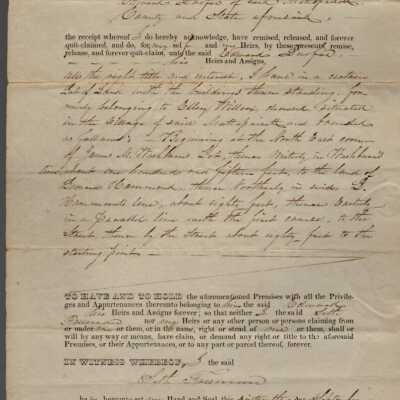 County and State aforesaid
the receipt whereof I do hereby acknowledge, have remised, released, and forever
quit-claimed, and do, for my self and my Heirs, by these presents remise,
release, and forever quit-claim, unto the said Edward
his Heirs and Assigns,
all the right title and interest, I have in a certain
lot of Land with the buildings thereon standing,
belonging to Ellery Willson, situated
in the village of said Mattapoisett and bounded
as follows: Beginning at the North East corner
of James M. Washburn lot, thence Westerly in Washburns
line about one hundred and fifteen feet, to the land of
Hammond thence Northerly in said
Hammonds line, about eighty feet, thence Easterly
in a Parallel line with the first course, to the
Street, thence by the Street about eighty feet to the
starting point
TO HAVE AND TO HOLD the aforementioned Premises with all the Privile-
ges and Appurtenances thereunto belonging to him the said Edward
his Heirs and Assigns forever; so that neither I the said Seth
Freeman nor my Heirs or any other person or persons claiming from
or under me or them, or in the name, right or stead of me or them, shall or
will by any way or means, have, claim, or demand any right or title to the aforesaid
Premises, or their Appurtenances, or to any part or parcel thereof, forever.
IN WITNESS WHEREOF, I the said
Seth Freeman
have hereunto set my Hand and Seal this